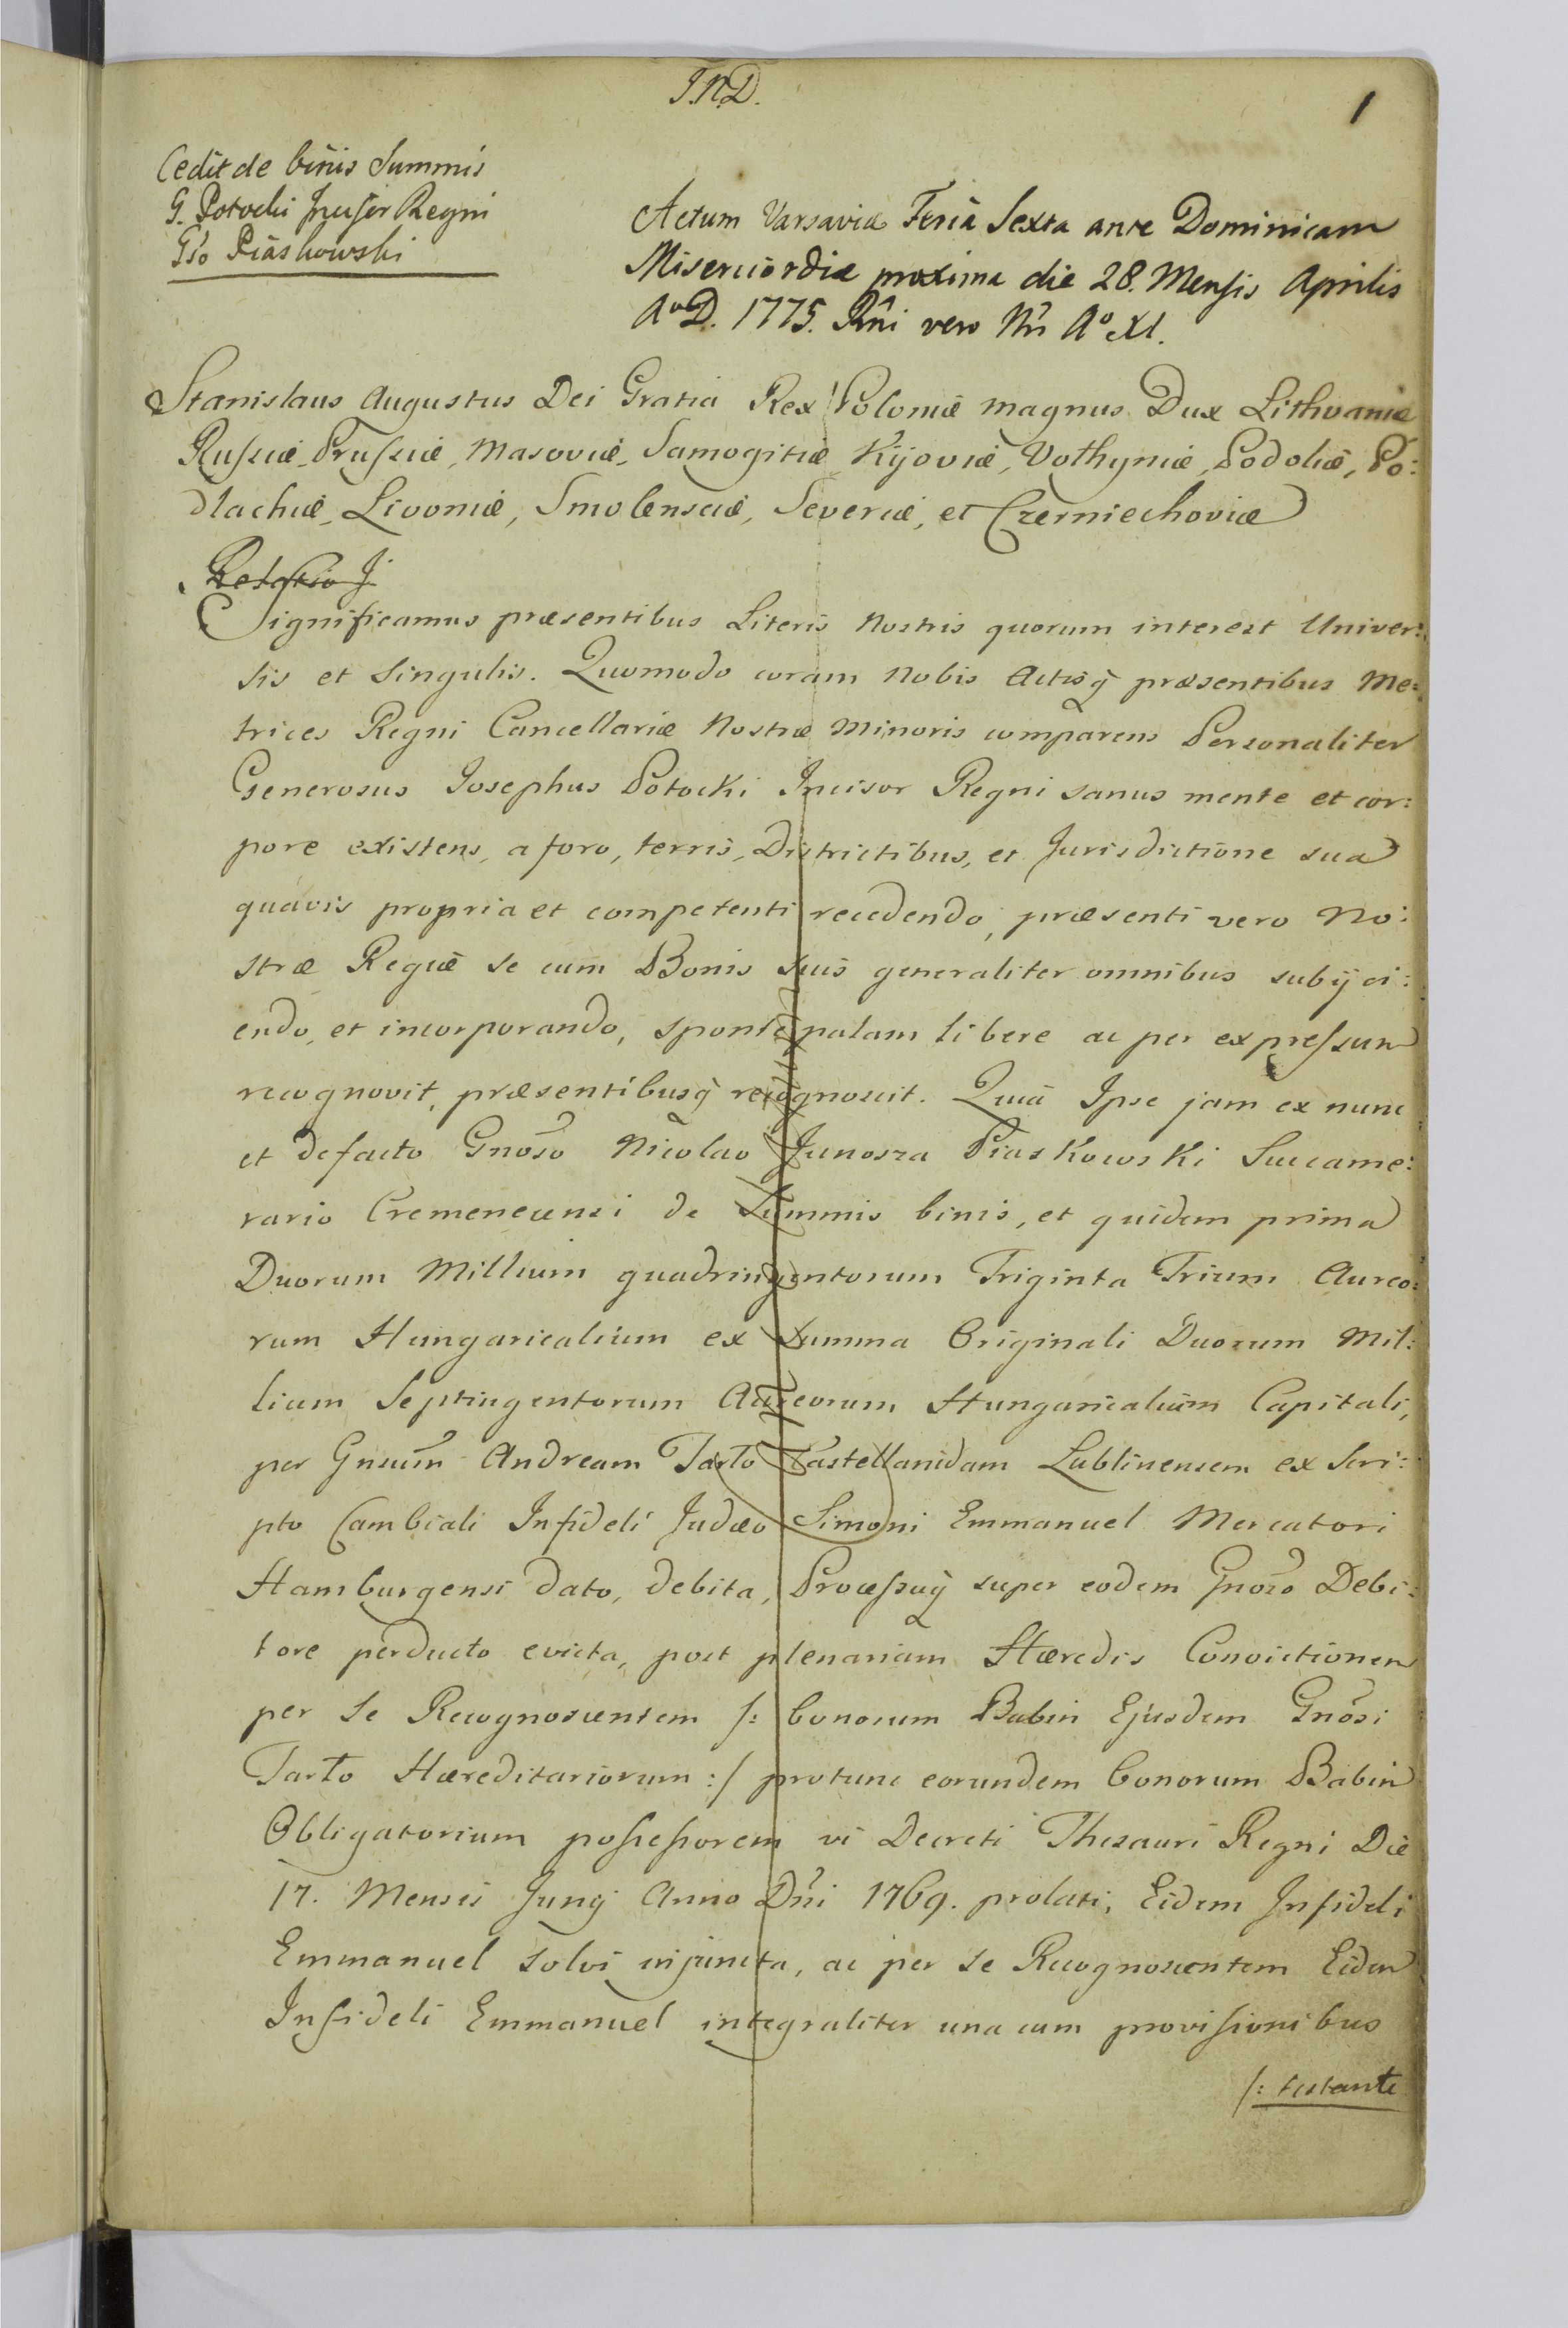 J.N.D.
1
Cedit de binis Summis
G. Potocki Incisor Regni
Gso Piaskowski
Actum Varsaviæ Feria Sexta ante Dominicam
Misericordiæ proxima die 28. Mensis Aprilis
Aº D. 1775. Rñi vero Nri Aº XI.
Stanislaus Augustus Dei Gratia Rex Poloniæ Magnus Dux Lithvaniæ
Russiæ, Prussiæ, Masoviæ, Samogitiæ Kijoviæ, Volhyniæ, Podoliæ, Po:
dlachiæ, Livoniæ, Smolensciæ, Severiæ, et Czerniechoviæ
Significamus præsentibus Literis Nostris quorum interest Univer:
sis et Singulis. Quomodo coram Nobis Actisq præsentibus Me:
trices Regni Cancellariæ Nostræ Minoris comparens Personaliter
Generosus Josephus Potocki Incisor Regni sanus mente et cor:
pore existens, a foro, terris, Districtibus, et Jurisdictione sua
quavis propria et competenti recedendo, præsenti vero No:
stræ Regiæ se cum Bonis suis generaliter omnibus subijci:
endo, et incorporando, sponte palam libere ac per expressum
recognovit, præsentibusq recognoscit. Quia Ipse jam ex nunc
et de facto Gnoso Nicolao Junosza Piaskowski Succame:
rario Cremenecensi de Summis binis, et quidem prima
Duorum Millium quadringentorum Triginta Trium Aureo:
rum Hungaricalium ex Summa Originali Duorum Mil:
lium Septingentorum Aureorum Hungaricalium Capitali,
per Gnsum Andream Tarło Castellanidam Lublinensem ex Scri:
pto Cambiali Infideli Judæo Simoni Emmanuel Mercatori
Hamburgensi dato, debita, Processuq super eodem Gnoso Debi:
tore perducto evicta, post plenariam Hæredis Convictionem
per Se Recognoscentem /: bonorum Babin Ejusdem Gnosi
Tarło Hæreditariorum :/ protunc eorundem bonorum Babin
Obligatorium possessorem vi Decreti Thesauri Regni Die
17. Mensis Junij Anno Dñi 1769. prolati, Eidem Infideli
Emmanuel solvi injuncta, ac per se Recognoscentem Eidem
Infideli Emmanuel integraliter una cum provisionibus
/: testante